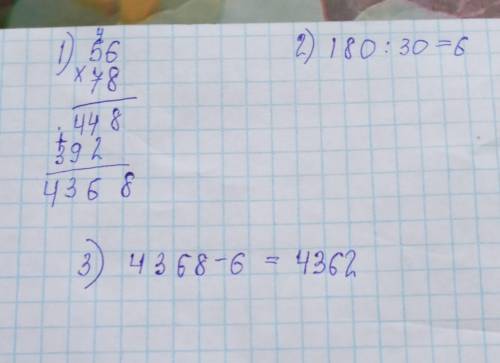 1) 4
56
× 78
448
1
392
4368
2) 180 : 30 = 6
3) 4368 - 6 = 4362